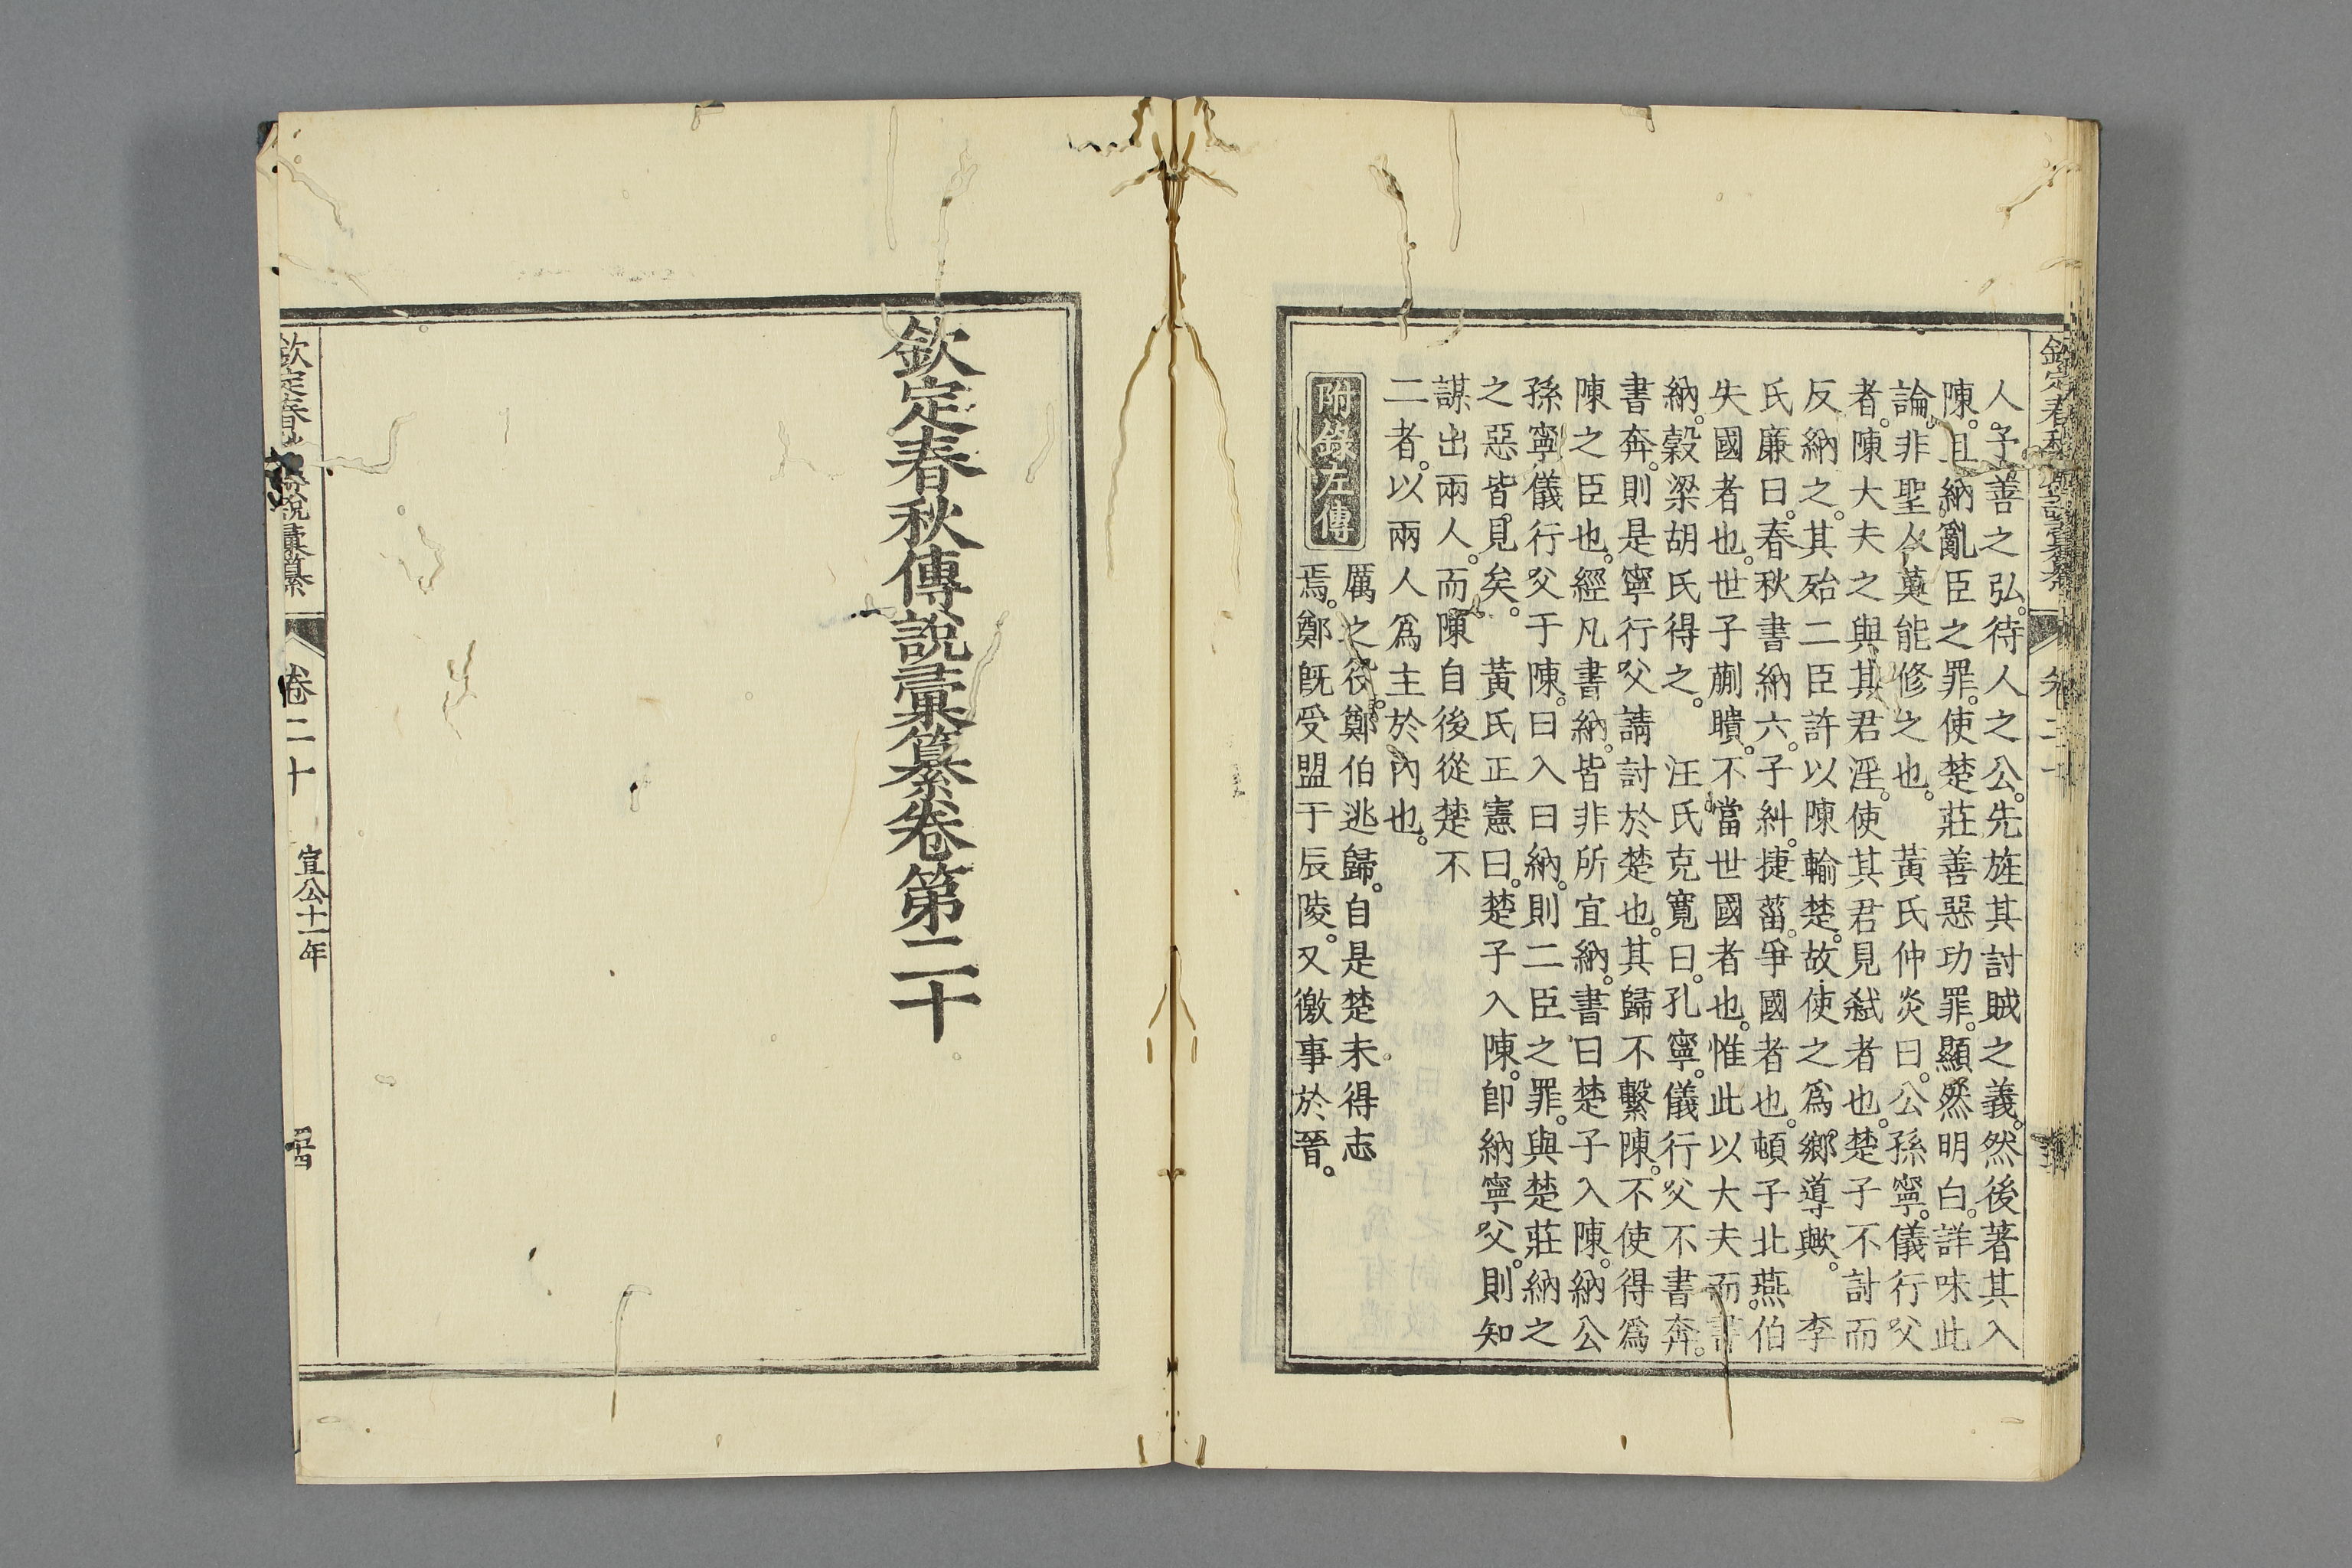 人。予善之弘。待人之公。先旌其討賊之義。然後著其入
陳。且納亂臣之罪。使楚莊善惡功罪。顯然明白。詳味此
論。非聖人莫能修之也。　黃氏仲炎曰。公孫寧。儀行父
者。陳大夫之與其君淫。使其君見弑者也。楚子不討而
反納之。其殆二臣許以陳輸楚。故使之爲鄉導歟。　李
氏廉曰。春秋書納六。子糾。捷菑。爭國者也。頓子北燕。伯
失國者也。世子蒯聵。不當世國者也。惟此以大夫而書
納。穀梁胡氏得之。　汪氏克寬曰。孔寧。儀行父不書奔。
書奔。則是寧行父請討於楚也。其歸不繫陳。不使得爲
陳之臣也。經凡書納。皆非所宜納。書曰楚子入陳。納公
孫寧儀行父于陳。曰入曰納。則二臣之罪。與楚莊納之
之惡皆見矣。　黃氏正憲曰。楚子入陳。卽納寧父。則知
謀出兩人。而陳自後從楚不
二者。以兩人爲主於內也。
附錄左傳
厲之役。鄭伯逃歸。自是楚未得志
焉。鄭旣受盟于辰陵。又徼事於晉。
欽定春秋傳說彙纂卷第二十
卷二十
宣公十一年